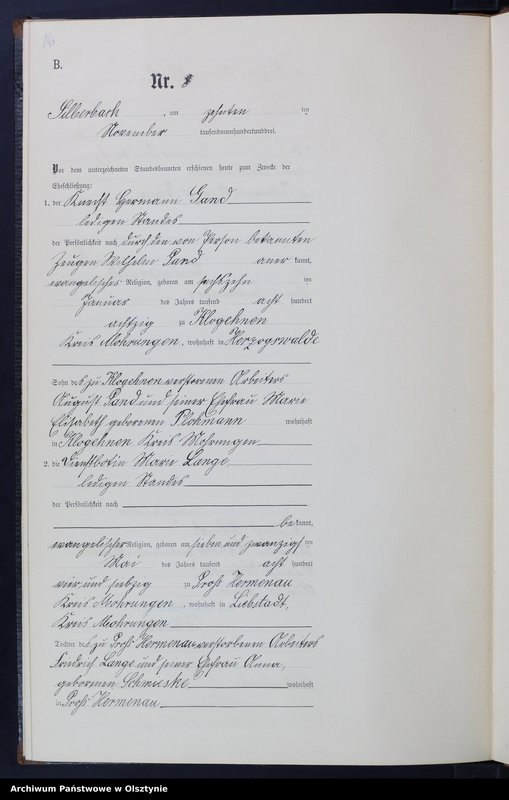 B.
Nr. 8
Silberbach, am zehnten ten
November tausendneunhundertunddrei.
Vor dem unterzeichneten Standesbeamten erschienen heute zum Zwecke der
Eheschließung:
1. der Knecht Hermann Gand
ledigen Standes
der Persönlichkeit nach durch den von Person bekannten
Zeugen Wilhelm Pand anerkannt,
evangelischer Religion, geboren am sechszehn ten
Januar des Jahres tausend acht hundert
achtzig zu Klogehnen
Kreis Mohrungen, wohnhaft in Herzogswalde
Sohn des zu Klogehnen verstorbenen Arbeiters
August Pand und seiner Ehefrau Marie
Elisabeth geborenen Plohmann wohnhaft
in Klogehnen Kreis Mohrungen
2. die Dienstbotin Marie Lange,
ledigen Standes
der Persönlichkeit nach
bekannt,
evangelischer Religion, geboren am sieben und zwanzigsten
Mai des Jahres tausend acht hundert
vier und siebzig zu Groß Hermenau
Kreis Mohrungen, wohnhaft in Liebstadt,
Kreis Mohrungen
Tochter des zu Groß Hermenau verstorbenen Arbeiters
Friedrich Lange und seiner Ehefrau Anna,
geborenen wohnhaft
in Groß Hermenau
Archiwum Państwowe w Olsztynie